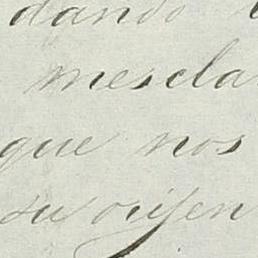 dando
mescla
que nos
su orijen